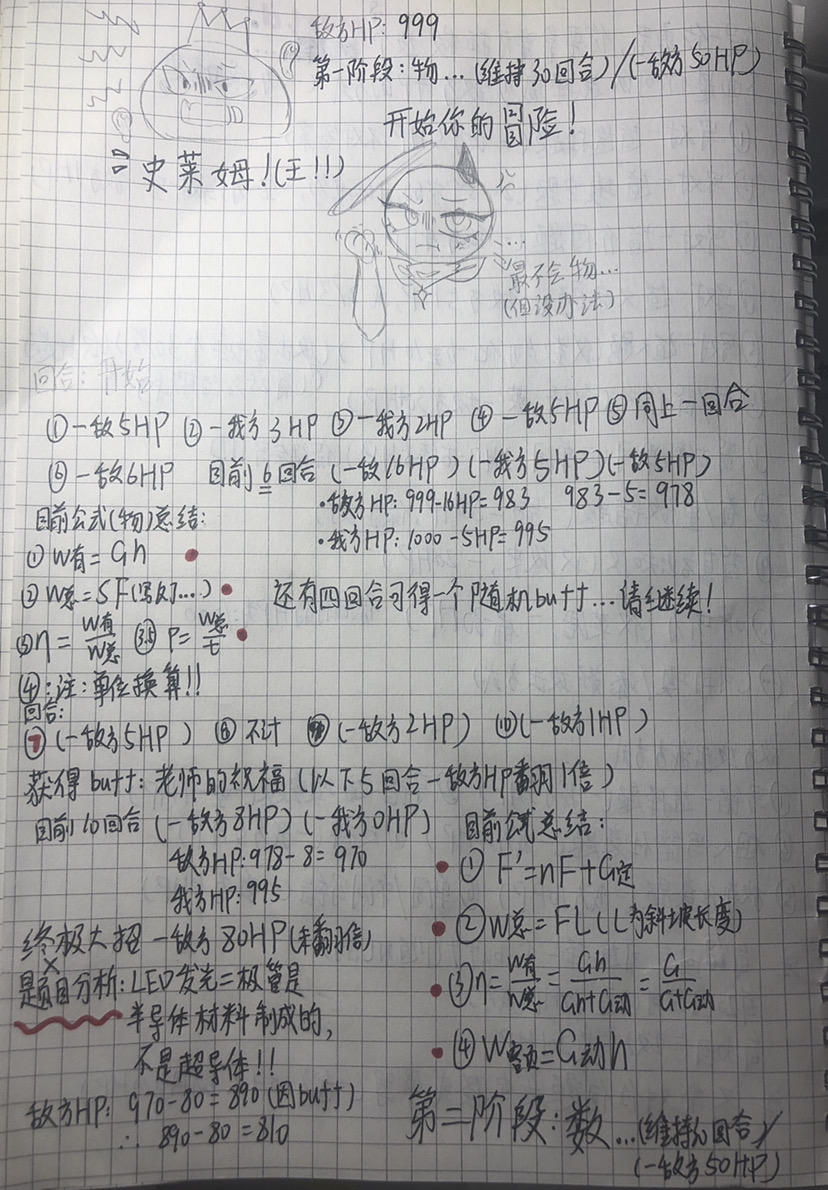 敌方HP: 999
第一阶段：物…(维持30回合)/(一敌方50HP)
开始你的冒险！
史莱姆！(王!!)
最不会物…
(但没办法)
回合：开始
①一敌5HP ②一我方3HP ③一我方2HP ④一敌5HP ⑤同上一回合
⑥一敌6HP 目前6回合 (一敌16HP)(一我方5HP)(一敌5HP)
·敌方HP: 999-16HP=983 983-5=978
目前公式(物)总结：
·我方HP: 1000-5HP=995
①W有=Gh
②W总=SF(写反了…) 还有四回合可得一个随机buff…请继续！
③η=W有/W总 ③.5 P=W总/t
④:注：单位换算!!
回合：
⑦(一敌方5HP) ⑧不计 ⑨(一敌方2HP) ⑩(一敌方1HP)
获得buff：老师的祝福(以下5回合一敌方HP翻1倍)
目前10回合(一敌方8HP)(一我方0HP)
敌方HP:978-8=970
我方HP: 995
目前公式总结：
①F'=nF+G定
②W总=FL(L为斜坡长度)
③η=W有/W总=Gh/Gh+G动=G/G+G动
④W额=G动h
终极大招一敌方80HP(未翻倍)
题目分析：LED发光二极管是
半导体材料制成的，
不是超导体!!
敌方HP: 970-80=890(因buff)
∴ 890-80=810
第二阶段：数…(维持 回合)/
(一敌方50HP)